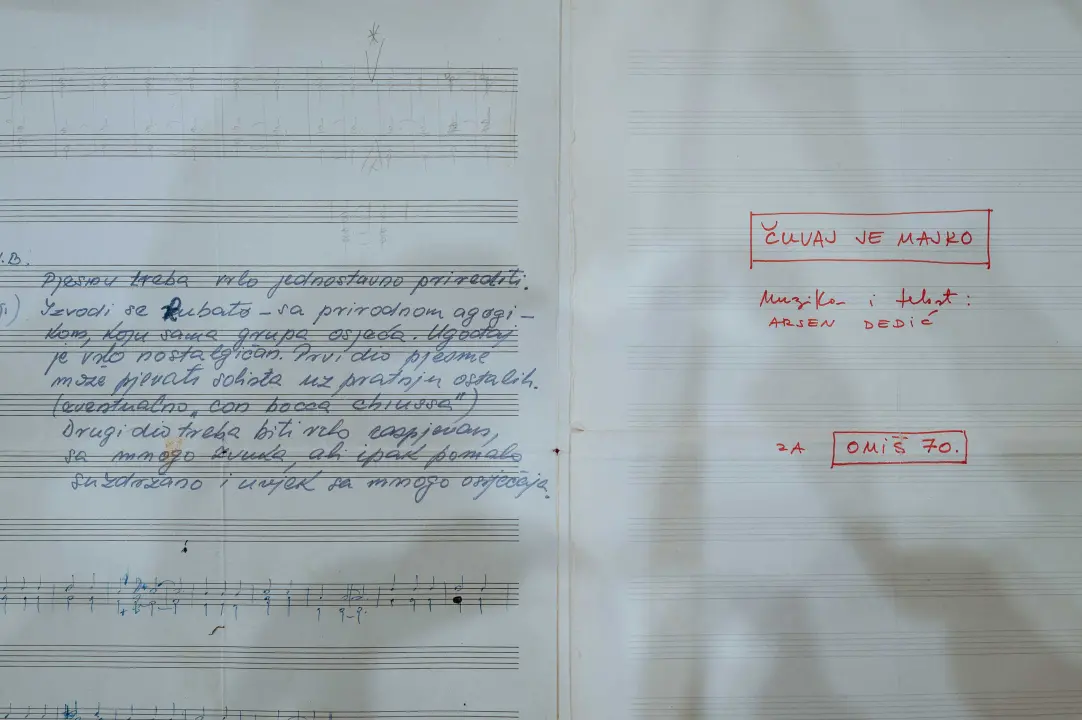 N.B.
Pjesmu treba vrlo jednostavno prirediti.
Izvodi se Rubato – sa prirodnom agogi-
kom, koju sama grupa osjeća. Ugođaj
je vrlo nostalgičan. Prvi dio pjesme
može pjevati solista uz pratnju ostalih.
(eventualno „con bocca chiussa")
Drugi dio treba biti vrlo raspjevan,
sa mnogo zvuka, ali ipak pomalo
suzdržano i uvjek sa mnogo osjećaja.
ČUVAJ JE MAJKO
Muzika i tekst:
ARSEN DEDIĆ
ZA OMIŠ 70.